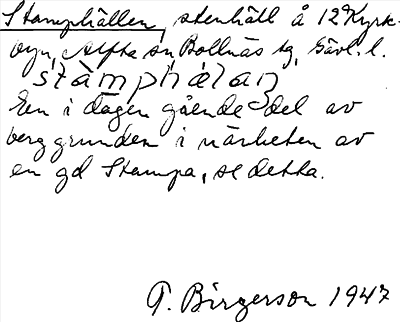 Stamphällen, stenhäll å 12 Kyrk-
byn, Alfta sn Bollnäs tg, Gävl. l.
stàmphälan
En i dagen gående del av
berggrunden i närheten av
en gd Stampa, se detta.
T. Birgerson 1947